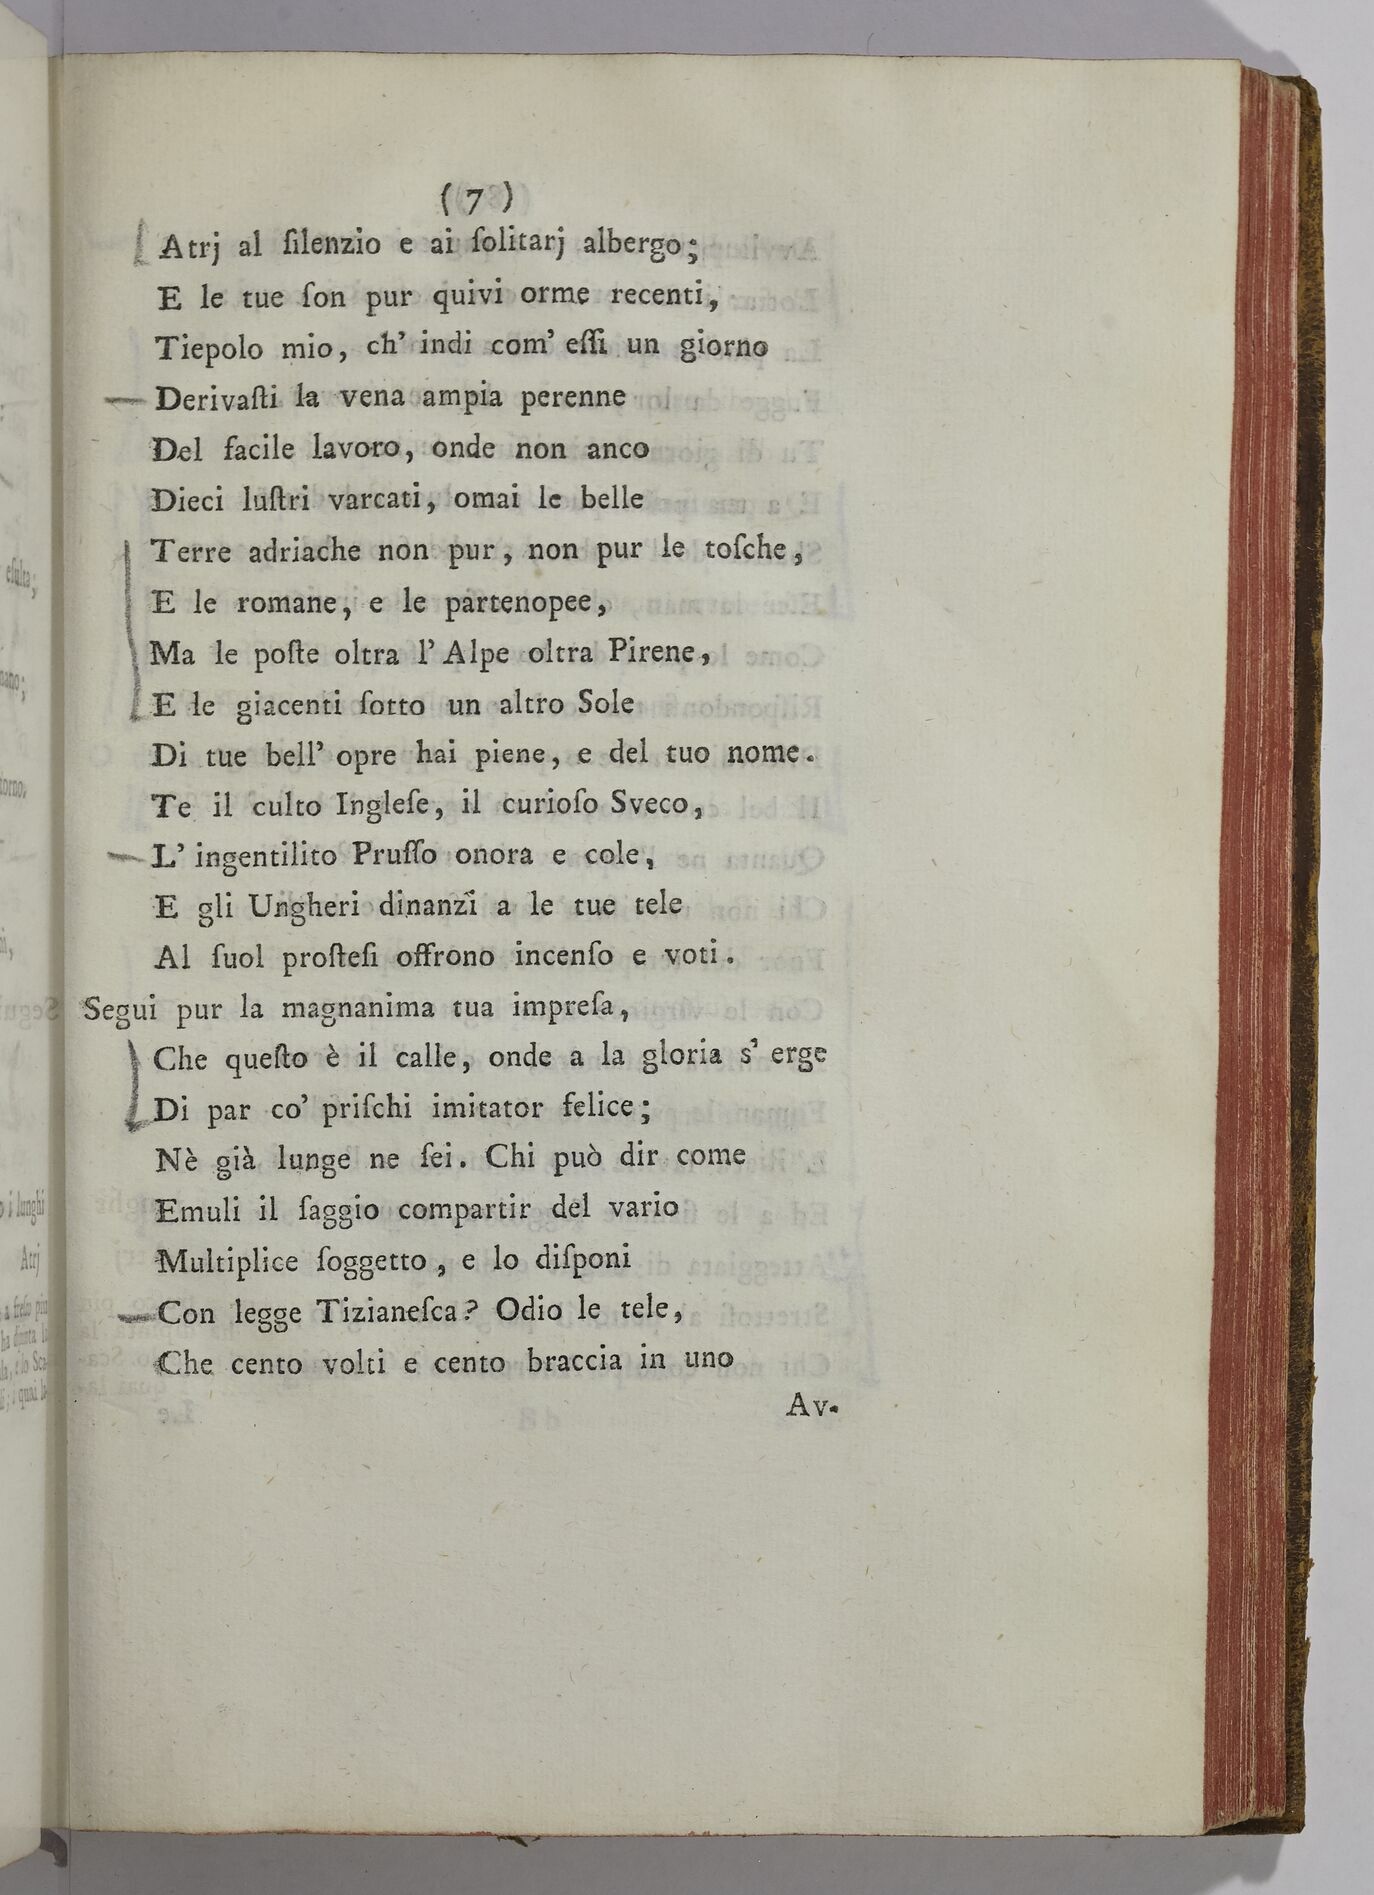 ( 7 )
Atrj al ſilenzio e ai ſolitarj albergo;
E le tue ſon pur quivi orme recenti,
Tiepolo mio, ch' indi com' eſſi un giorno
Derivaſti la vena ampia perenne
Del facile lavoro, onde non anco
Dieci luſtri varcati, omai le belle
Terre adriache non pur, non pur le toſche,
E le romane, e le partenopee,
Ma le poſte oltra l' Alpe oltra Pirene,
E le giacenti ſotto un altro Sole
Di tue bell' opre hai piene, e del tuo nome.
Te il culto Ingleſe, il curioſo Sveco,
L' ingentilito Pruſſo onora e cole,
E gli Ungheri dinanzi a le tue tele
Al ſuol proſteſi offrono incenſo e voti.
Segui pur la magnanima tua impreſa,
Che queſto è il calle, onde a la gloria s' erge
Di par co' priſchi imitator felice;
Nè già lunge ne ſei. Chi può dir come
Emuli il ſaggio compartir del vario
Multiplice ſoggetto, e lo diſponi
Con legge Tizianeſca? Odio le tele,
Che cento volti e cento braccia in uno
Av-